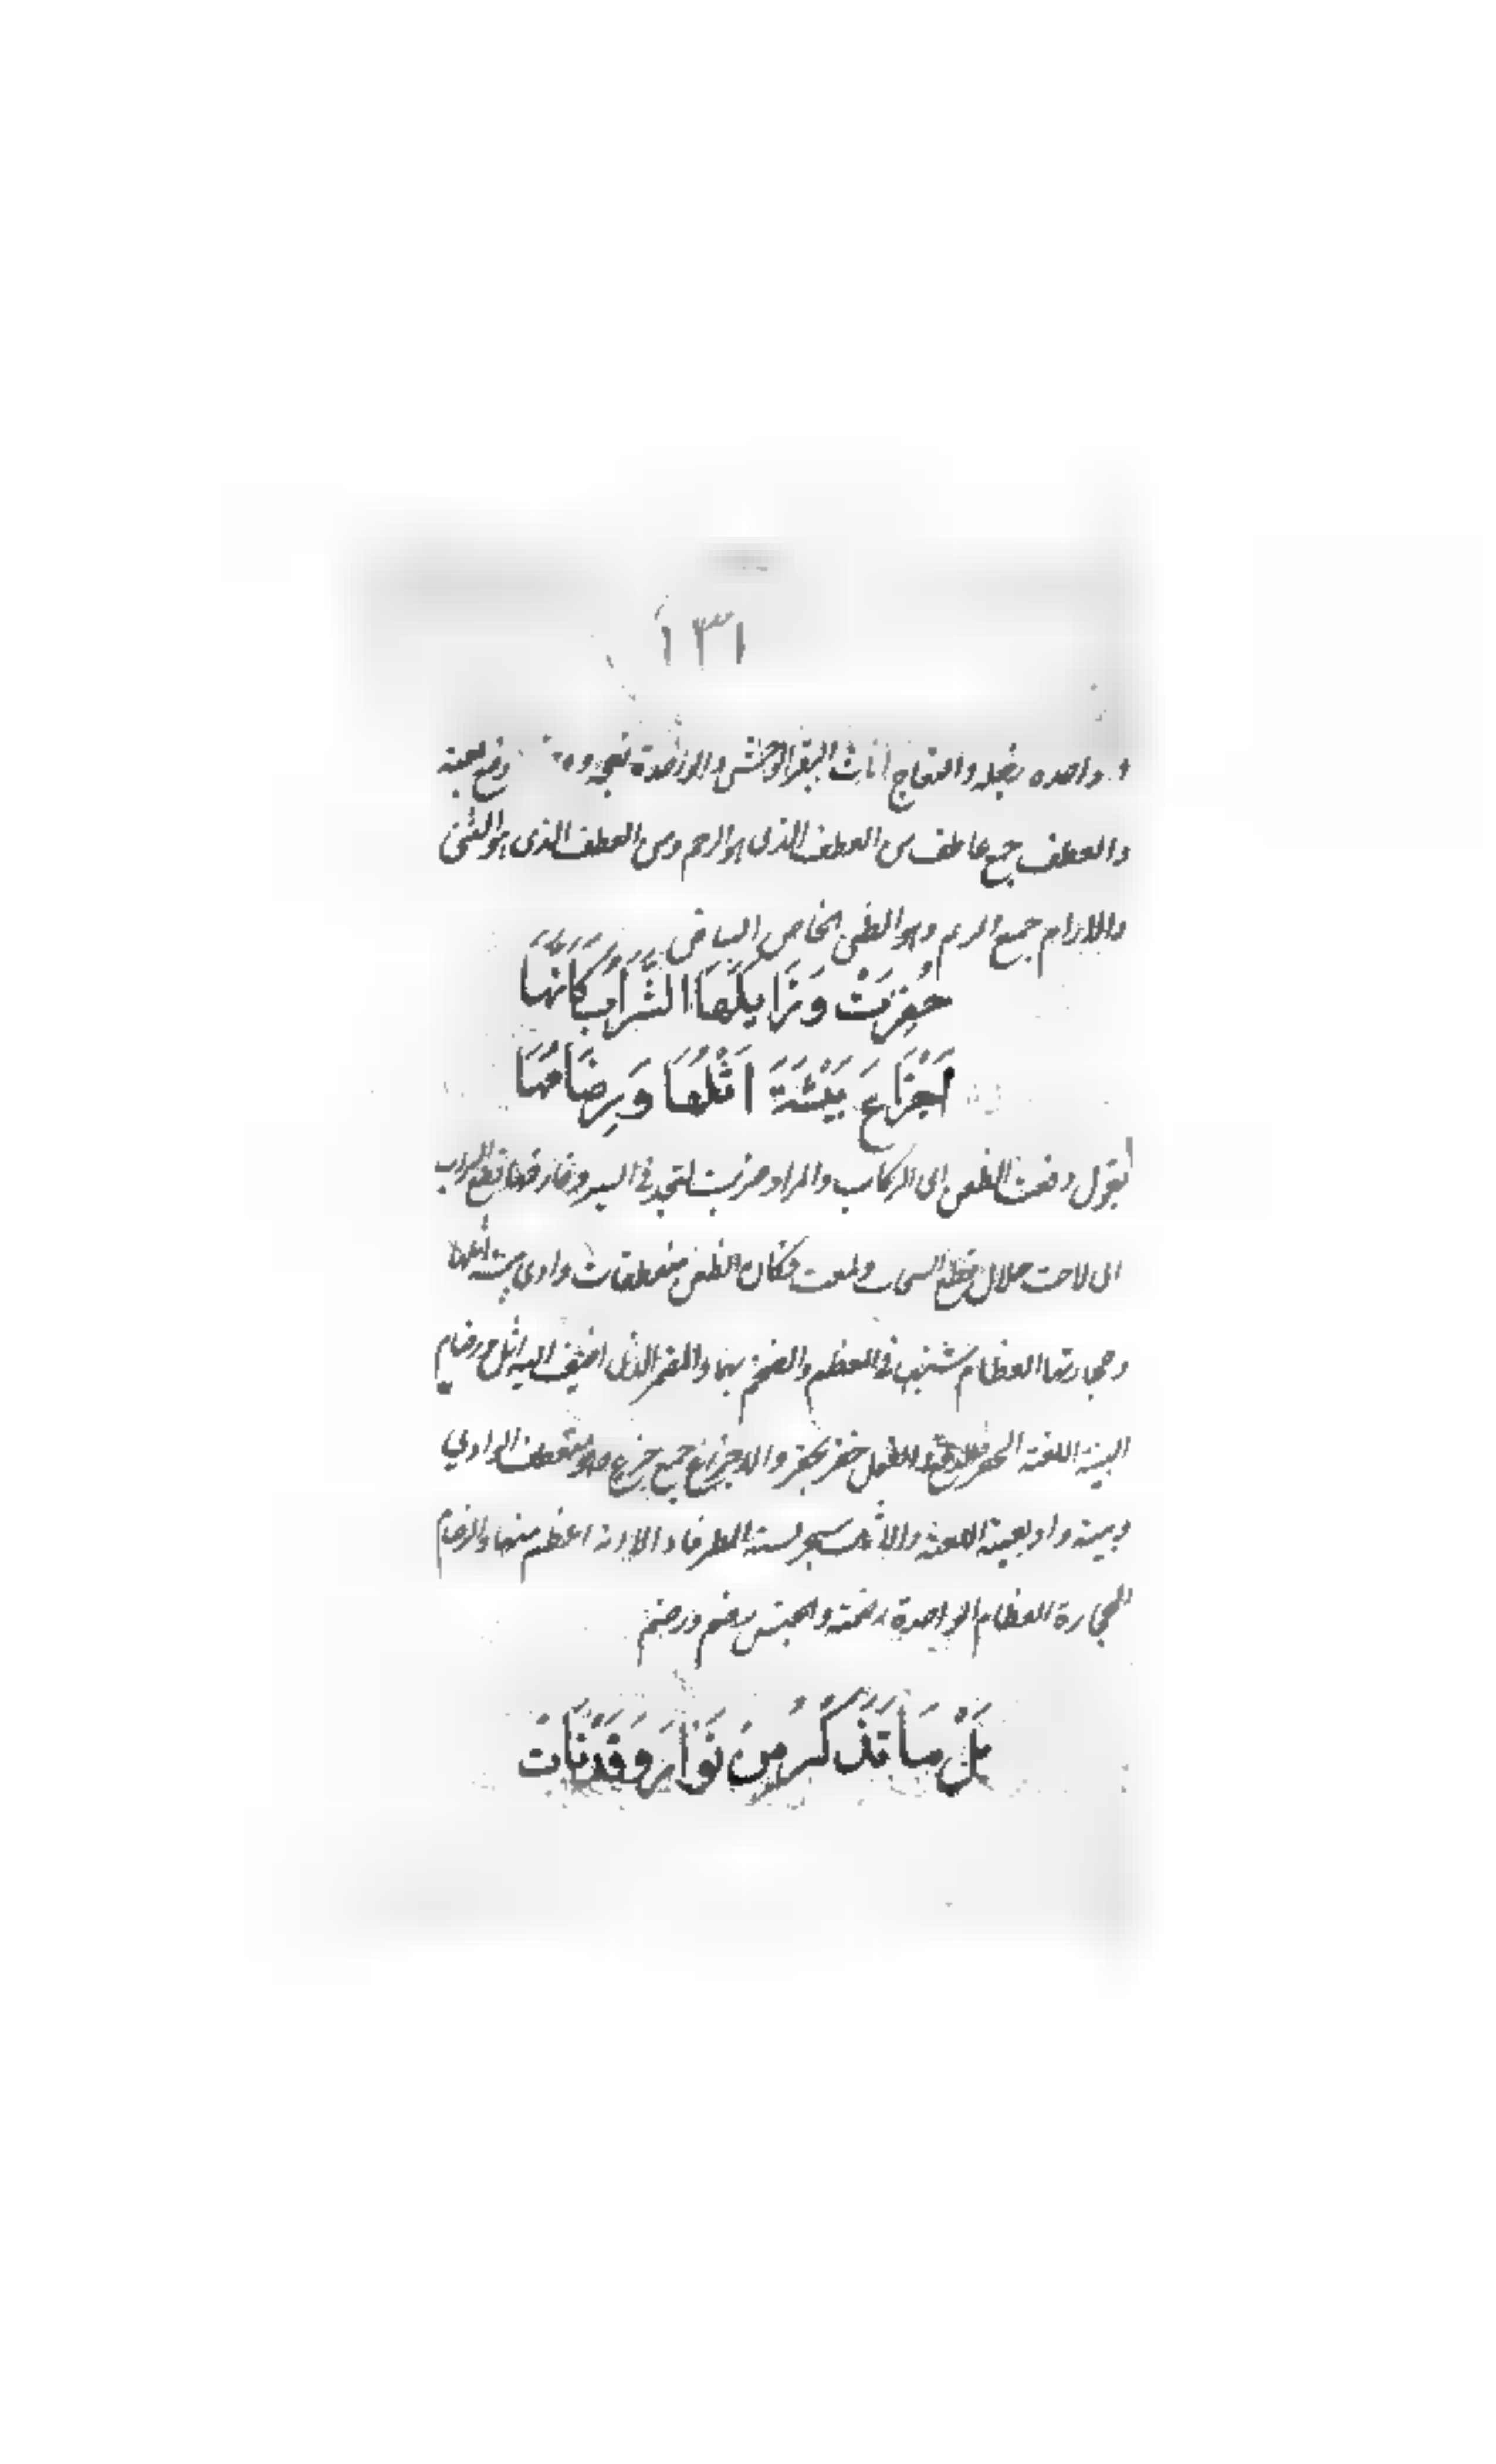 ١٣١
واحده نجله والنعاج اناث البقر الوحش والواحدة نعجه وضع بعينه
والعطف جمع عاطف من العطف الذى هو الرحم ومن العطف الذى هو الثنى
والارام جمع الريم وهو الظبى الخاص البياض
حُفِزَتْ وَزَايَلَهَا السَّرَابُ كَأَنَّهَا
اَجْزَاعَ بَيْشَةَ اَثْلُهَا وَرِضَامُهَا
يقول دفعت الظعن اى الركاب والمراد ضربت لتجد فى السير وفارقها قطع السراب
اى لاحت خلال قطع السراب ولمعت فكان الظعن منعطفات وادى بيشه اثلها
وحجارتها العظام شبهها فى العظم والضخم بهما والضمير الذى اضيف اليه اثل ورضام
لبيشه اللغة الحفز الدفع والفعل حفز يحفز والاجزاع جمع جزع وهو منعطف الوادي
وبيشه واد بعينه اللغة والاثل شجر يشبه الطرفاء الا انه اعظم منها والرضام
الحجارة العظام الواحدة رضمة والجنس رضم ورضم
بَلْ مَا تَذَكَّرُ مِنْ نَوَارَ وَقَدْ نَاَتْ